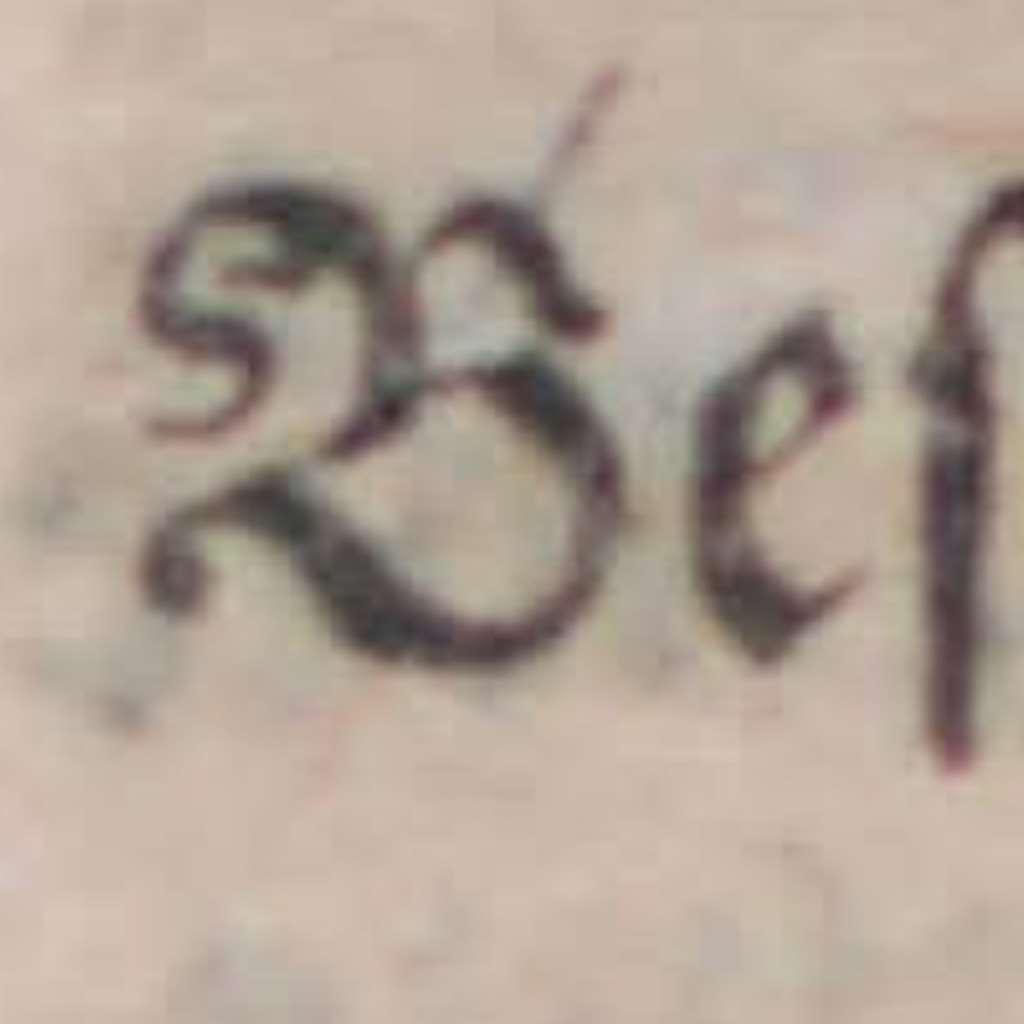 Beſ